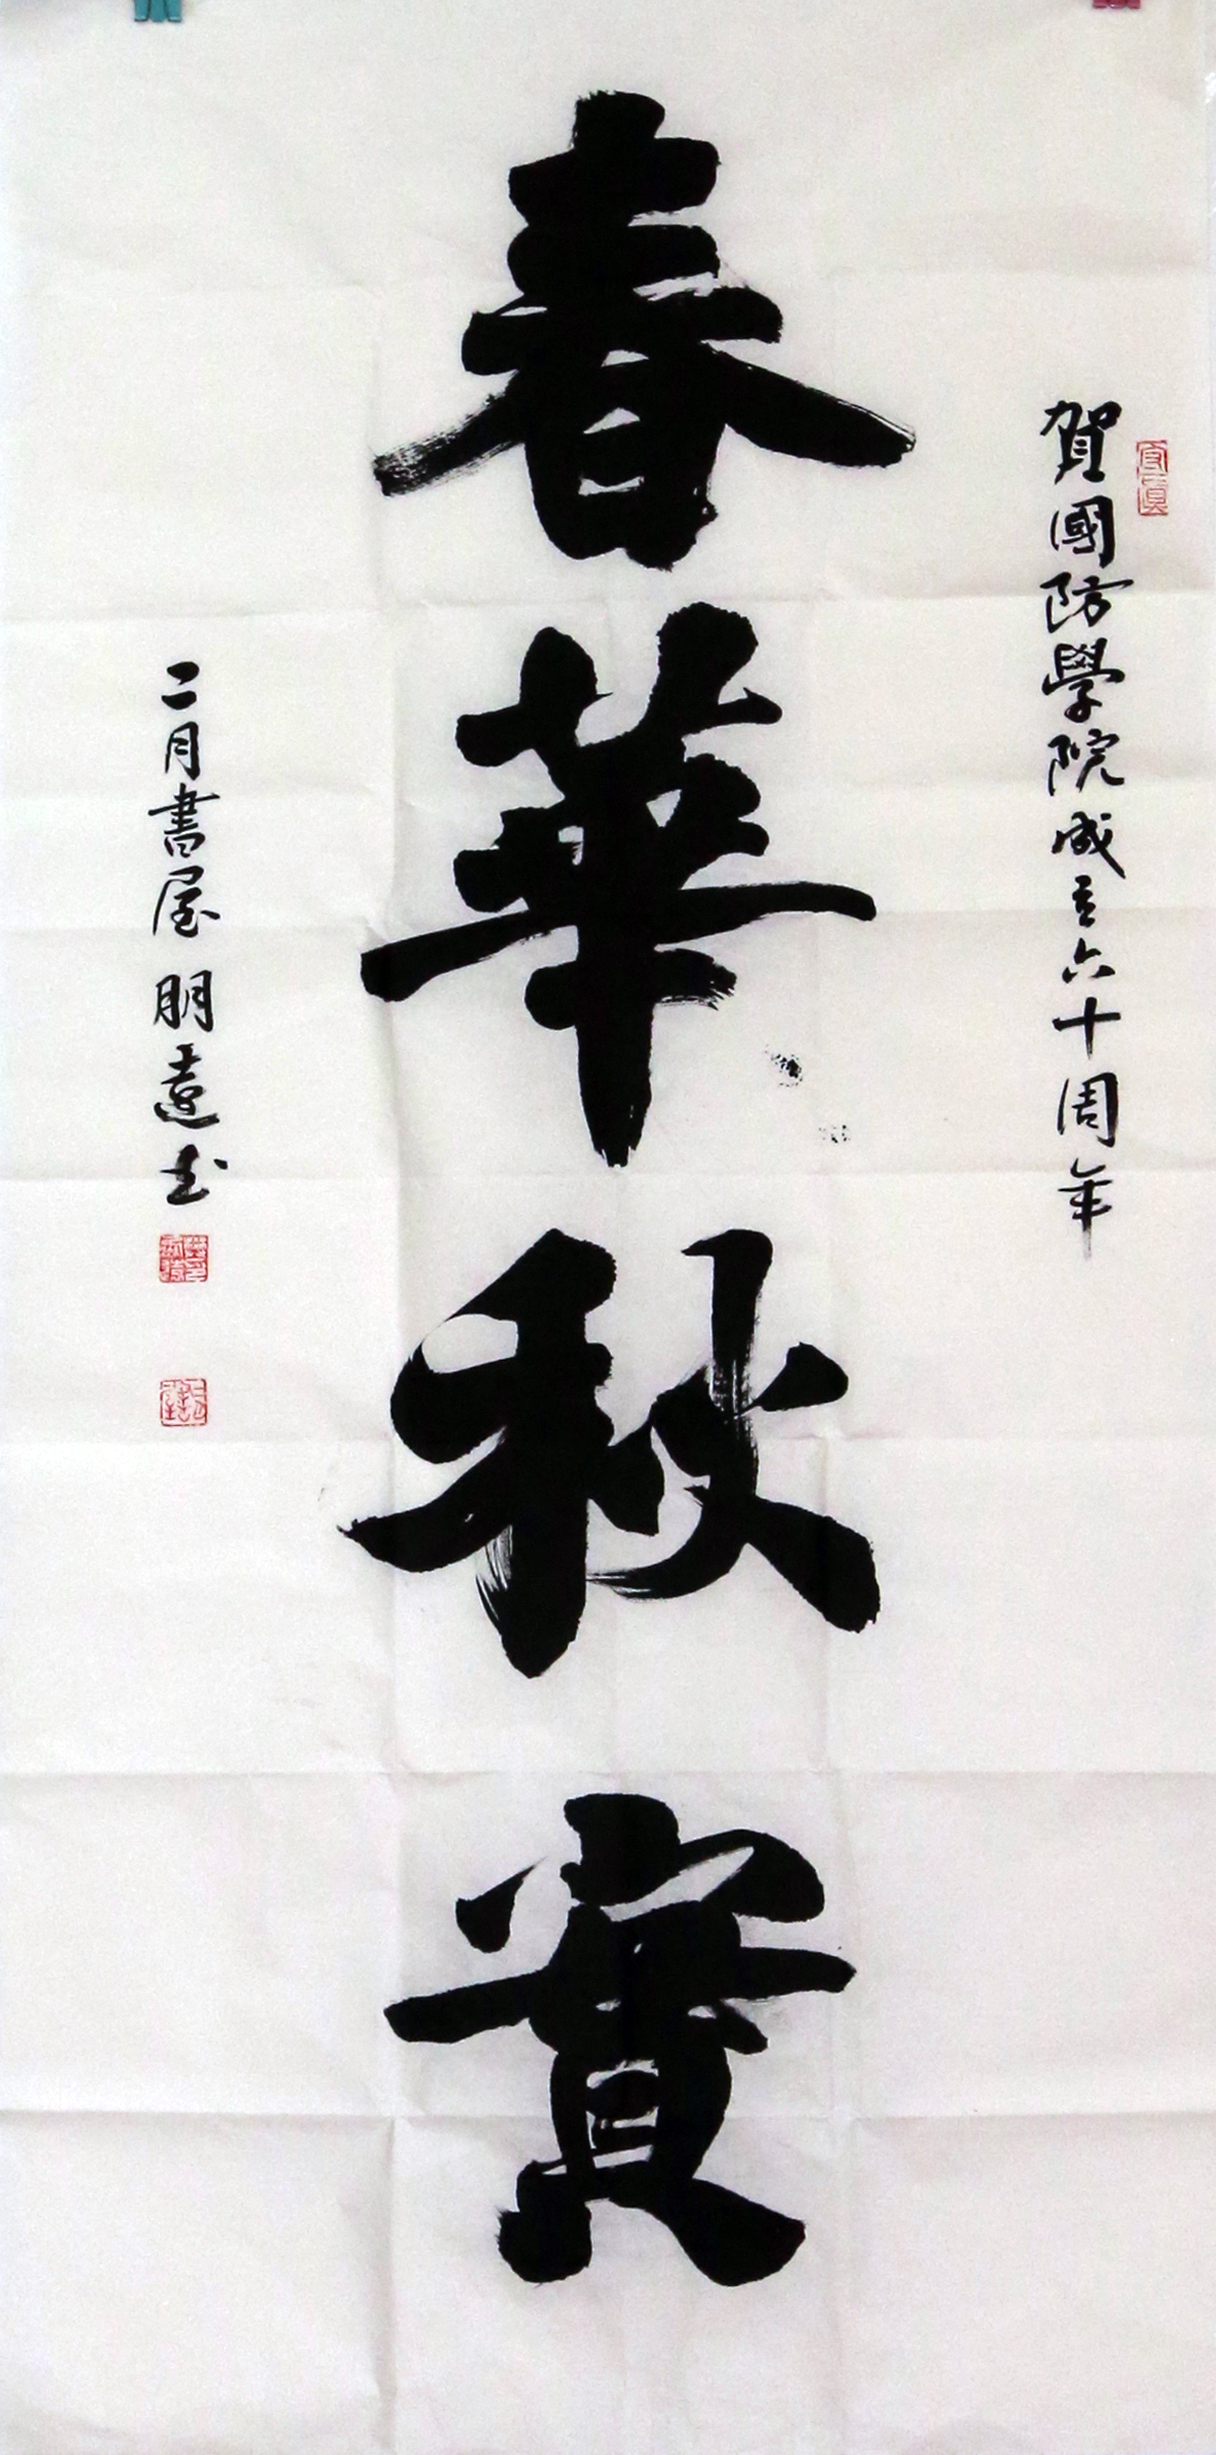 賀國防學院成立六十周年
春華秋實
二月書屋朋遠书